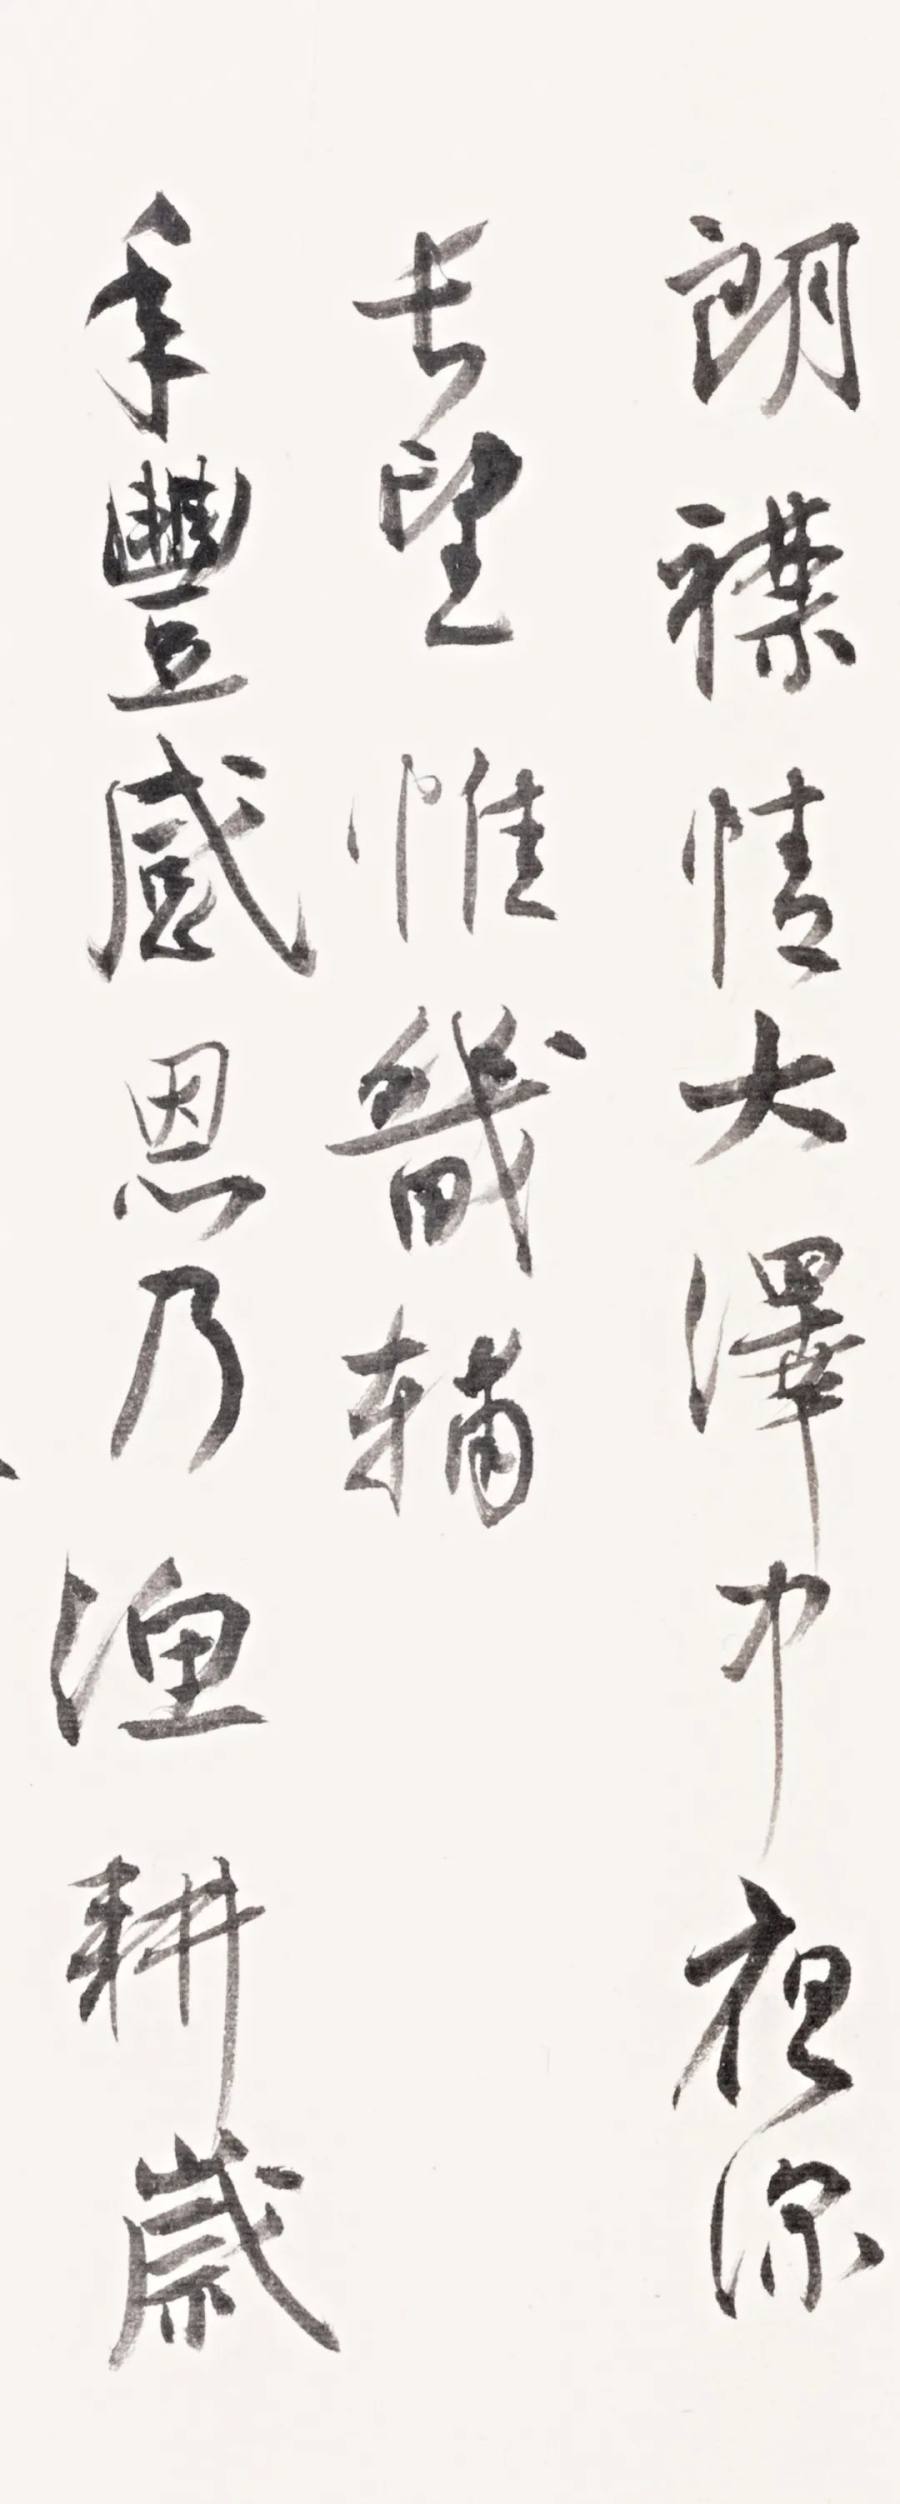 朗襟情大澤中深
望惟畿輔
年豐感恩乃漁耕歲